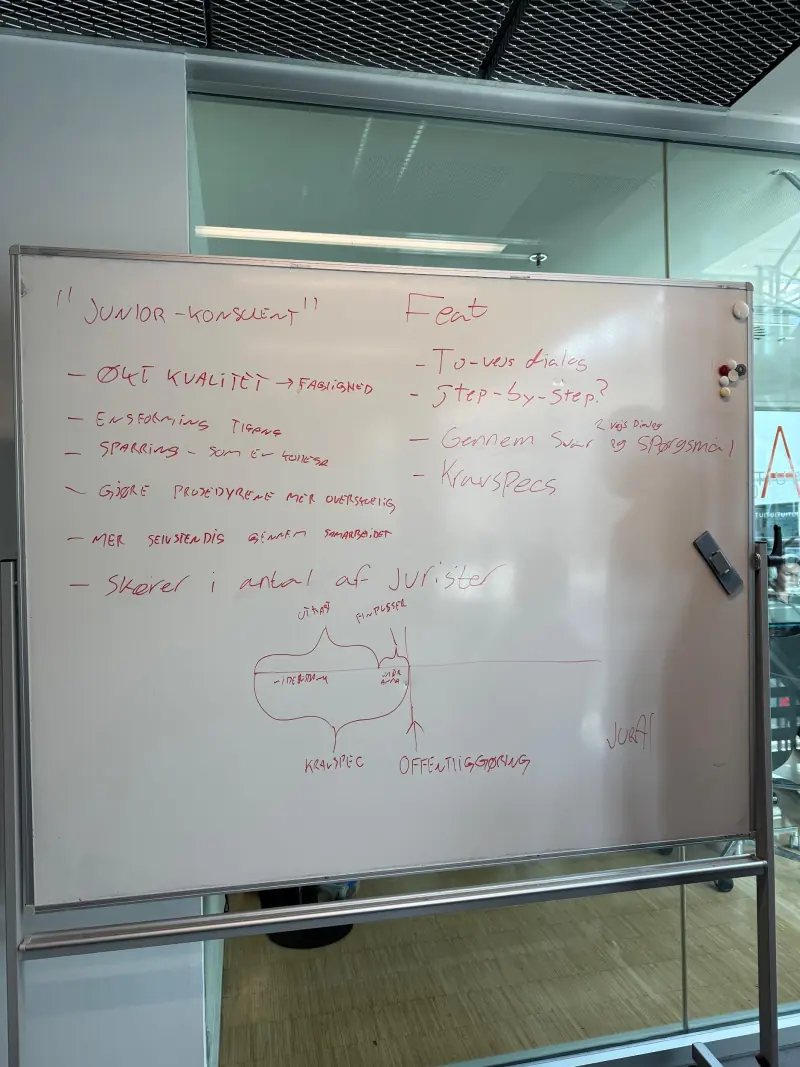 "JUNIOR-KONSULENT"
- ØKT KVALITET → FAGLIGHED
- ENSFORMING TIGANG
- SPARRING - SOM EN KOLLEGA
- GJØRE PROSEDYRENE MER OVERSKUELIG
- MER SELVSTENDIG GENNEM SAMARBEIDET
- Skører i antal af jurister
Feat
- To-vejs dialog
- Step-by-step?
2 vejs Dialog
- Gennem svar og spørgsmål
- Kravspecs
UTKAST FINPUSSER
KRAVSPEC OFFENTLIGGØRING
JURAI